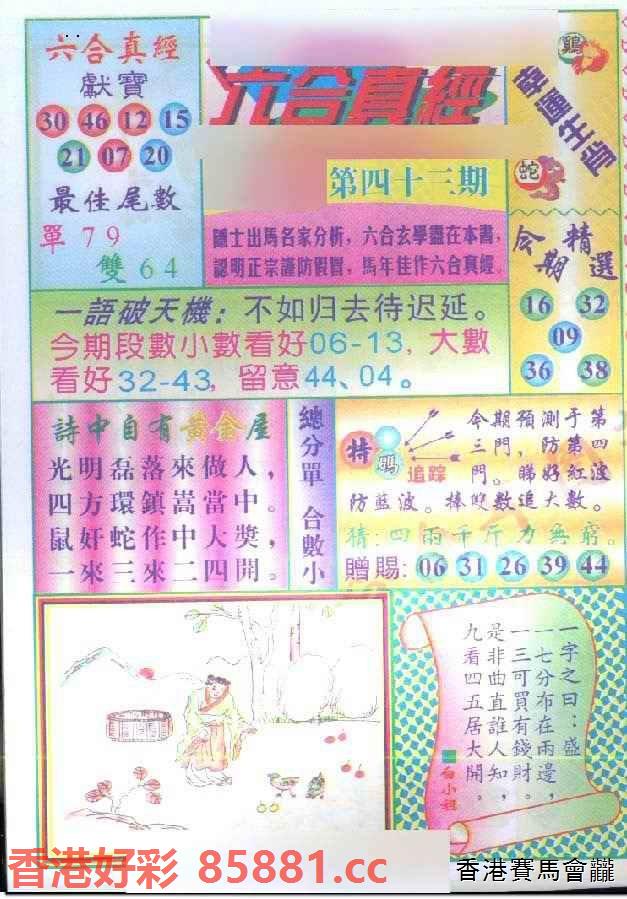 六合真經
獻寶
30 46 12 15
21 07 20
最佳尾數
單 7 9
雙 6 4
六合真經
第四十三期
認明正宗謹防假冒，馬年佳作六合真經
鷄
蛇
今期精選
16 32
09
36 38
一語破天機：不如归去待迟延。
今期段數小數看好06-13，大數
看好32-43，留意44、04。
詩中自有黃金屋
光明磊落來做人，
四方環鎮嵩當中。
鼠奸蛇作中大獎，
一來三來二四開。
總分單 合數小
特碼
追踪
今期預測于第
三門，防第四
門。睇好紅波
防藍波。捧雙數追大數。
猜：四兩千斤力無窮。
贈賜：06 31 26 39 44
一字之曰：盛
一七分布在兩邊，
一三可買有錢財。
是非曲直誰人知，
九看四五居大開。
白小姐
香港好彩 85881.cc
香港賽馬會